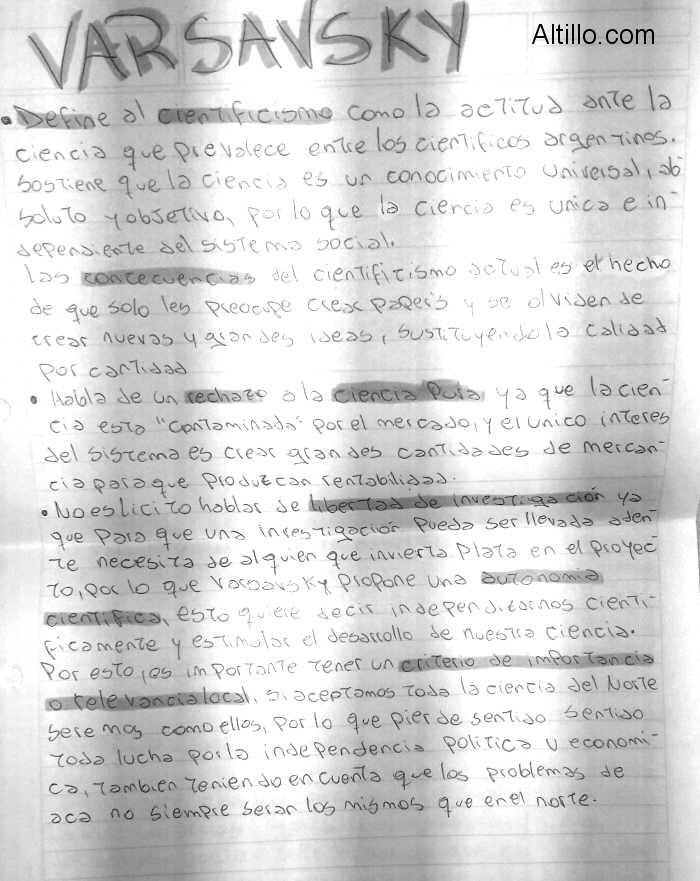 VARSAVSKY
Altillo.com
• Define al cientificismo como la actitud ante la
ciencia que prevalece entre los cientificos argentinos.
Sostiene que la ciencia es un conocimiento universal, ab-
soluto y objetivo, por lo que la ciencia es unica e in-
dependiente del sistema social.
Las concecuencias del cientificismo actual es el hecho
de que solo les preocupe crear paper's y se olviden de
crear nuevas y grandes ideas, sustituyendo la calidad
por cantidad
• Habla de un rechazo a la ciencia Pura, ya que la cien-
cia esta "contaminada" por el mercado, y el unico interes
del sistema es crear grandes cantidades de mercan-
cia para que produzcan rentabilidad.
• No es licito hablar de libertad de investigación ya
que para que una investigación pueda ser llevada aden-
te necesita de alquien que invierta plata en el proyec-
to, por lo que Varsavsky propone una autonomia
cientifica, esto quiere decir independitarnos cienti-
ficamente y estimular el desarrollo de nuestra ciencia.
Por esto, es importante tener un criterio de importancia
o relevancia local, si aceptamos toda la ciencia del Norte
seremos como ellos, por lo que pierde sentido sentido
toda lucha por la independencia politica u economi-
ca, tambien teniendo en cuenta que los problemas de
aca no siempre seran los mismos que en el norte.